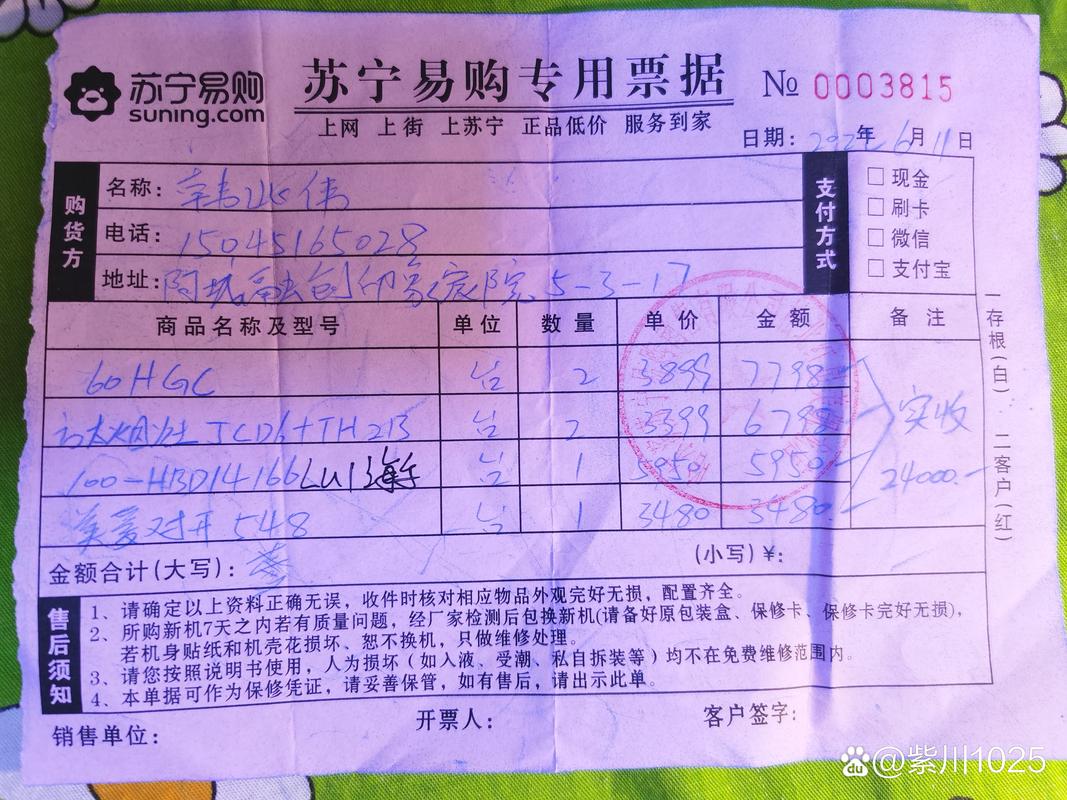 苏宁易购 suning.com
苏宁易购专用票据
№ 0003815
上网 上街 上苏宁 正品低价 服务到家
日期: 年 6月 11日
购货方
名称: 韩 伟
电话: 15045165028
地址: 阿城融创 家庭院 5-3-17
支付方式
□ 现金
□ 刷卡
□ 微信
□ 支付宝
商品名称及型号 单位 数量 单价 金额 备注
60HGC 台 2 3899 7798
烟灶 JCD6+TH21B 台 2 3399 6798
100-HBD14166LU1 台 1 5950 5950
美菱对开 548 台 1 3480 3480
实收
24000.-
金额合计(大写):
(小写)¥:
一存根(白) 二客户(红)
售后须知
1、请确定以上资料正确无误，收件时核对相应物品外观完好无损，配置齐全。
2、所购新机7天之内若有质量问题，经厂家检测后包换新机(请备好原包装盒、保修卡、保修卡完好无损)，
若机身贴纸和机壳花损坏、恕不换机，只做维修处理。
3、请您按照说明书使用，人为损坏（如入液、受潮、私自拆装等）均不在免费维修范围内。
4、本单据可作为保修凭证，请妥善保管，如有售后，请出示此单。
销售单位:
开票人:
客户签字:
@紫川1025